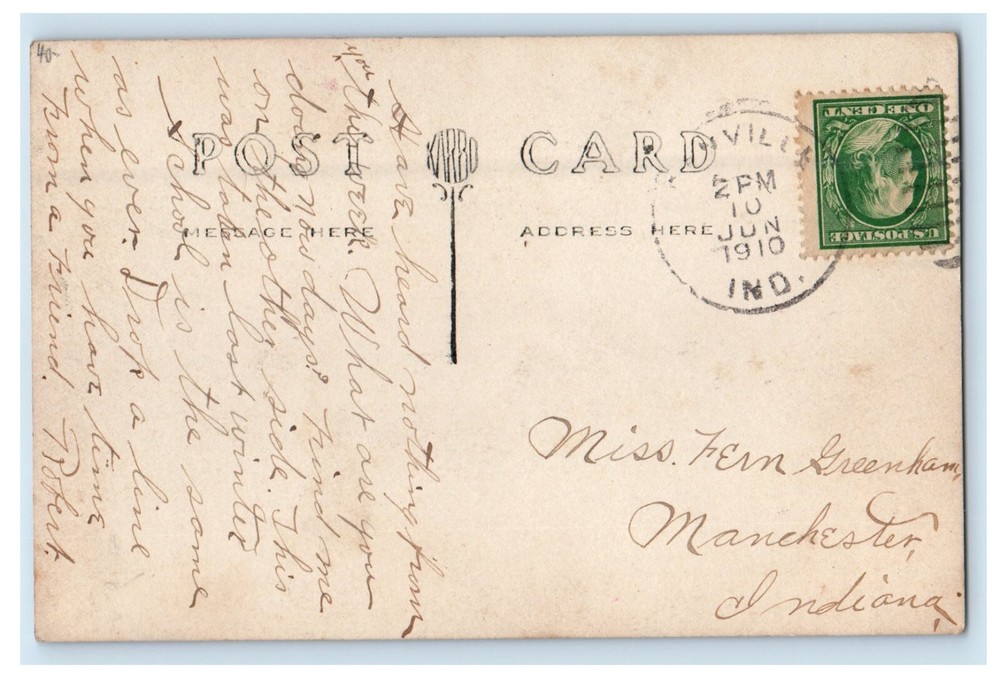 40-
POST CARD
MESSAGE HERE
ADDRESS HERE
VILLE
2 PM
10
JUN
1910
IND.
U.S. POSTAGE
ONE CENT
Have heard nothing from
you this week. What are you
doing nowdays? Find me
on the other side. This
was taken last winter
School is the same
as ever. Drop a line
when you have time
From a Friend. Robert.
Miss. Fern Greenham,
Manchester,
Indiana,